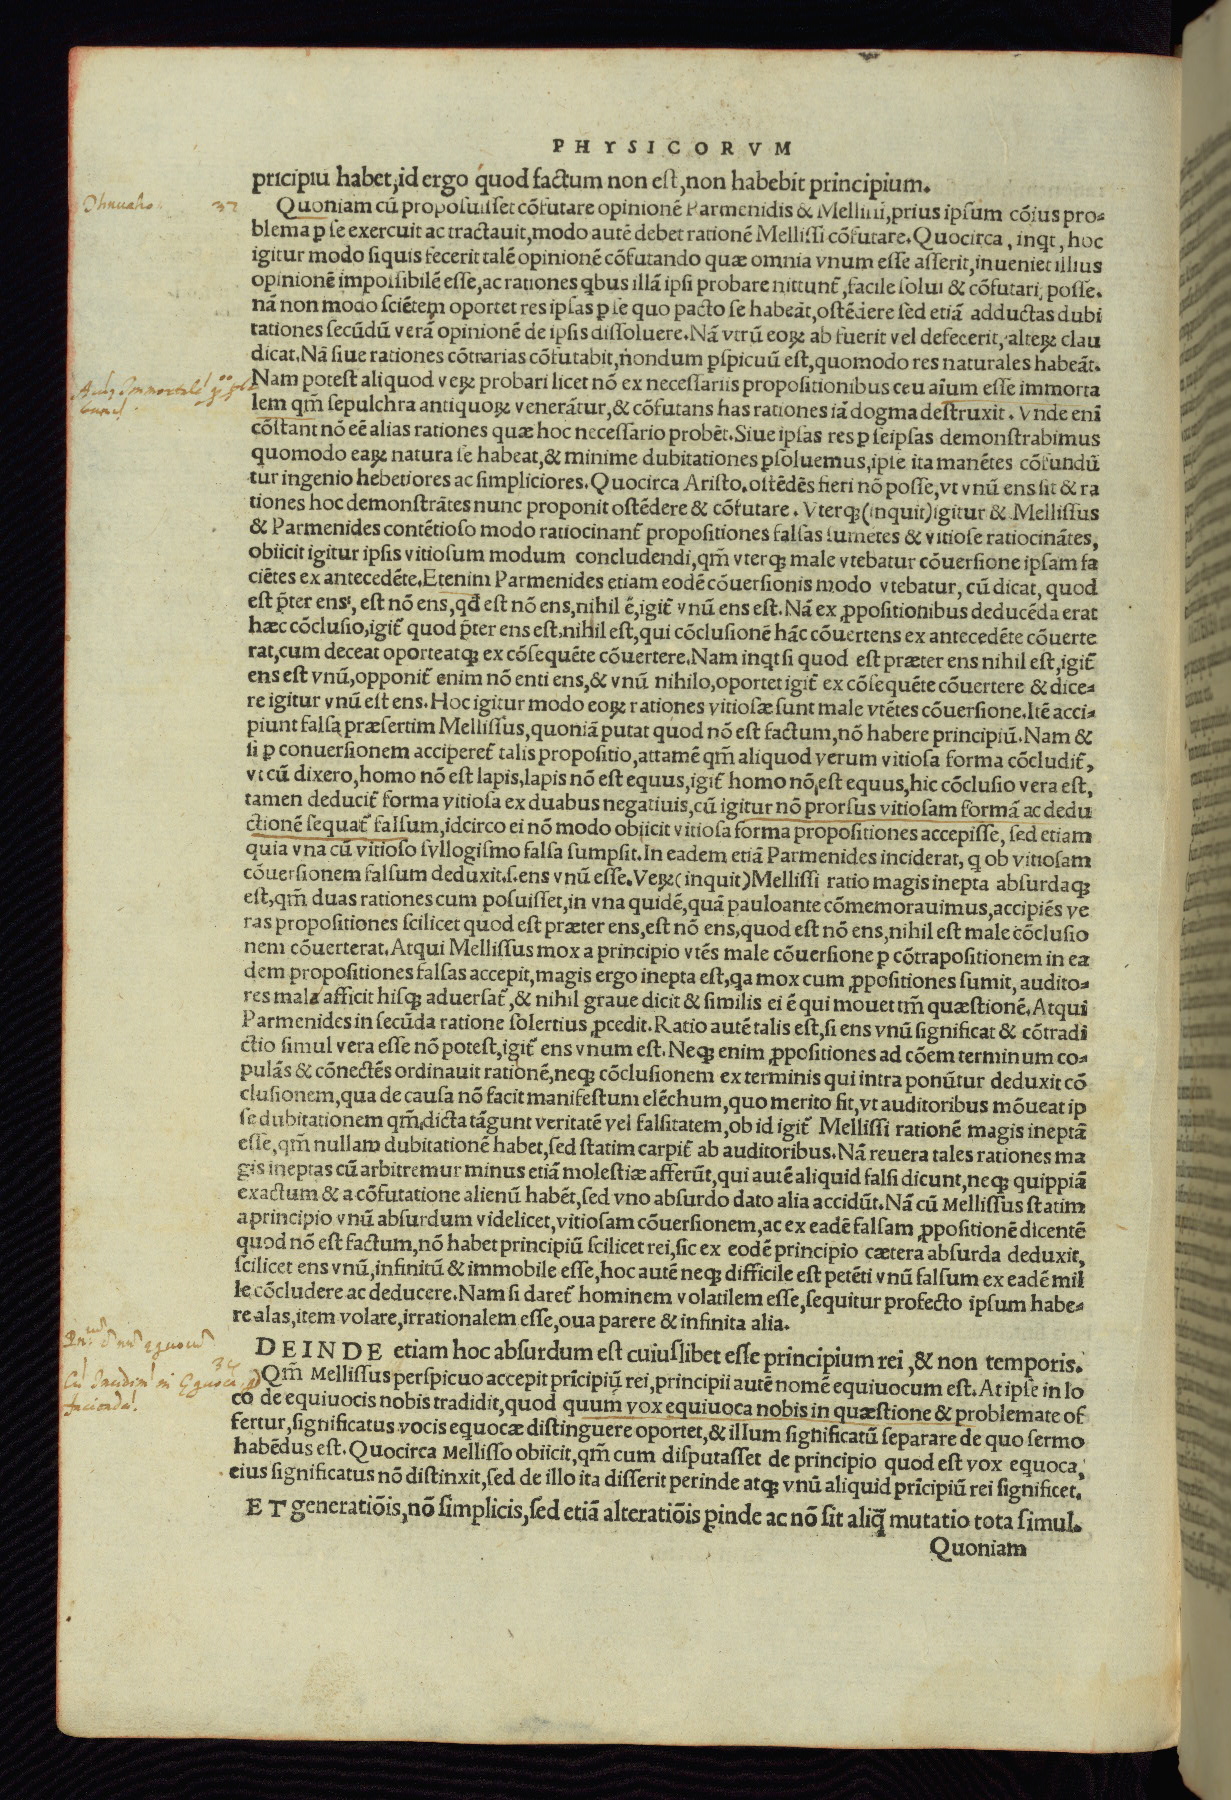 PHYSICORVM
prīcipiū habet, id ergo quod factum non est, non habebit principium.
32
Quoniam cū proposuisset cōfutare opinionē Parmenidis & Mellissi, prius ipsum cōius pro-
blema ꝑ se exercuit ac tractauit, modo autē debet rationē Mellissi cōfutare. Quocirca, inqt, hoc
igitur modo siquis fecerit talē opinionē cōfutando quæ omnia vnum esse asserit, inueniet illius
opinionē impossibilē esse, ac rationes qbus illā ipsi probare nittunt̄, facile solui & cōfutari, posse.
nā non modo sciētem oportet res ipsas ꝑ se quo pacto se habeāt, ostēdere sed etiā adductas dubi
tationes secūdū verā opinionē de ipsis dissoluere. Nā vtrū eoꝝ ab fuerit vel defecerit, alteꝝ clau
dicat. Nā siue rationes cōtrarias cōfutabit, nondum ꝑspicuū est, quomodo res naturales habeāt.
Nam potest aliquod veꝝ probari licet nō ex necessariis propositionibus ceu aīum esse immorta
lem qm̄ sepulchra antiquoꝝ venerātur, & cōfutans has rationes iā dogma destruxit. Vnde enī
cōstant nō eē alias rationes quæ hoc necessario probēt. Siue ipsas res ꝑ seipsas demonstrabimus
quomodo eaꝝ natura se habeat, & minime dubitationes ꝑsoluemus, ipse ita manētes cōfundū
tur ingenio hebetiores ac simpliciores. Quocirca Aristo. ostēdēs fieri nō posse, vt vnū ens sit & ra
tiones hoc demonstrātes nunc proponit ostēdere & cōfutare. Vterqꝫ (inquit) igitur & Mellissus
& Parmenides contētioso modo ratiocinant̄ propositiones falsas sumētes & vitiose ratiocinātes,
obiicit igitur ipsis vitiosum modum concludendi, qm̄ vterqꝫ male vtebatur cōuersione ipsam fa
ciētes ex antecedēte. Etenim Parmenides etiam eodē cōuersionis modo vtebatur, cū dicat, quod
est p̄ter ens, est nō ens, qd est nō ens, nihil ē, igit̄ vnū ens est. Nā ex ꝓpositionibus deducēda erat
hæc cōclusio, igit̄ quod p̄ter ens est, nihil est, qui cōclusionē hāc cōuertens ex antecedēte cōuerte
rat, cum deceat oporteatqꝫ ex cōsequēte cōuertere. Nam inqt si quod est præter ens nihil est, igit̄
ens est vnū, opponit̄ enim nō enti ens, & vnū nihilo, oportet igit̄ ex cōsequēte cōuertere & dice-
re igitur vnū est ens. Hoc igitur modo eoꝝ rationes vitiosæ sunt male vtētes cōuersione. Itē acci-
piunt falsą præsertim Mellissus, quoniā putat quod nō est factum, nō habere principiū. Nam &
si ꝑ conuersionem acciperet̄ talis propositio, attamē qm̄ aliquod verum vitiosa forma cōcludit̄,
vt cū dixero, homo nō est lapis, lapis nō est equus, igit̄ homo nō est equus, hic cōclusio vera est,
tamen deducit̄ forma vitiosa ex duabus negatiuis, cū igitur nō prorsus vitiosam formā ac dedu
ctionē sequat̄ falsum, idcirco ei nō modo obiicit vitiosa forma propositiones accepisse, sed etiam
quia vna cū vitioso syllogismo falsa sumpsit. In eadem etiā Parmenides inciderat, q ob vitiosam
cōuersionem falsum deduxit. s. ens vnū esse. Veꝝ (inquit) Mellissi ratio magis inepta absurdaqꝫ
est, qm̄ duas rationes cum posuisset, in vna quidē, quā pauloante cōmemorauimus, accipiēs ve
ras propositiones scilicet quod est præter ens, est nō ens, quod est nō ens, nihil est male cōclusio
nem cōuerterat. Atqui Mellissus mox a principio vtēs male cōuersione ꝑ cōtrapositionem in ea
dem propositiones falsas accepit, magis ergo inepta est, qa mox cum ꝓpositiones sumit, audito-
res male afficit hisqꝫ aduersat̄, & nihil graue dicit & similis ei ē qui mouet tm̄ quæstionē. Atqui
Parmenides in secūda ratione solertius ꝓcedit. Ratio autē talis est, si ens vnū significat & cōtradi
ctio simul vera esse nō potest, igit̄ ens vnum est. Neqꝫ enim ꝓpositiones ad cōem terminum co-
pulās & cōnectēs ordinauit rationē, neqꝫ cōclusionem ex terminis qui intra ponūtur deduxit cō
clusionem, qua de causa nō facit manifestum elēchum, quo merito fit, vt auditoribus mōueat ip
se dubitationem qm̄ dicta tāgunt veritatē vel falsitatem, ob id igit̄ Mellissi rationē magis ineptā
esse, qm̄ nullam dubitationē habet, sed statim carpit̄ ab auditoribus. Nā reuera tales rationes ma
gis ineptas cū arbitremur minus etiā molestiæ afferūt, qui autē aliquid falsi dicunt, neqꝫ quippiā
exactum & a cōfutatione alienū habēt, sed vno absurdo dato alia accidūt. Nā cū Mellissus statim
a principio vnū absurdum videlicet, vitiosam cōuersionem, ac ex eadē falsam ꝓpositionē dicentē
quod nō est factum, nō habet principiū scilicet rei, sic ex eodē principio cætera absurda deduxit,
scilicet ens vnū, infinitū & immobile esse, hoc autē neqꝫ difficile est petēti vnū falsum ex eadē mil
le cōcludere ac deducere. Nam si daret̄ hominem volatilem esse, sequitur profecto ipsum habe-
re alas, item volare, irrationalem esse, oua parere & infinita alia.
DEINDE etiam hoc absurdum est cuiuslibet esse principium rei, & non temporis.
Qm̄ Mellissus perspicuo accepit prīcipiū rei, principii autē nomē equiuocum est. At ipse in lo
co de equiuocis nobis tradidit, quod quum vox equiuoca nobis in quæstione & problemate of
fertur, significatus vocis equocæ distinguere oportet, & illum significatū separare de quo sermo
habēdus est. Quocirca Mellisso obiicit, qm̄ cum disputasset de principio quod est vox equoca,
eius significatus nō distinxit, sed de illo ita disserit perinde atqꝫ vnū aliquid prīcipiū rei significet.
ET generatiōis, nō simplicis, sed etiā alteratiōis ꝑinde ac nō sit aliq̄ mutatio tota simul.
Quoniam